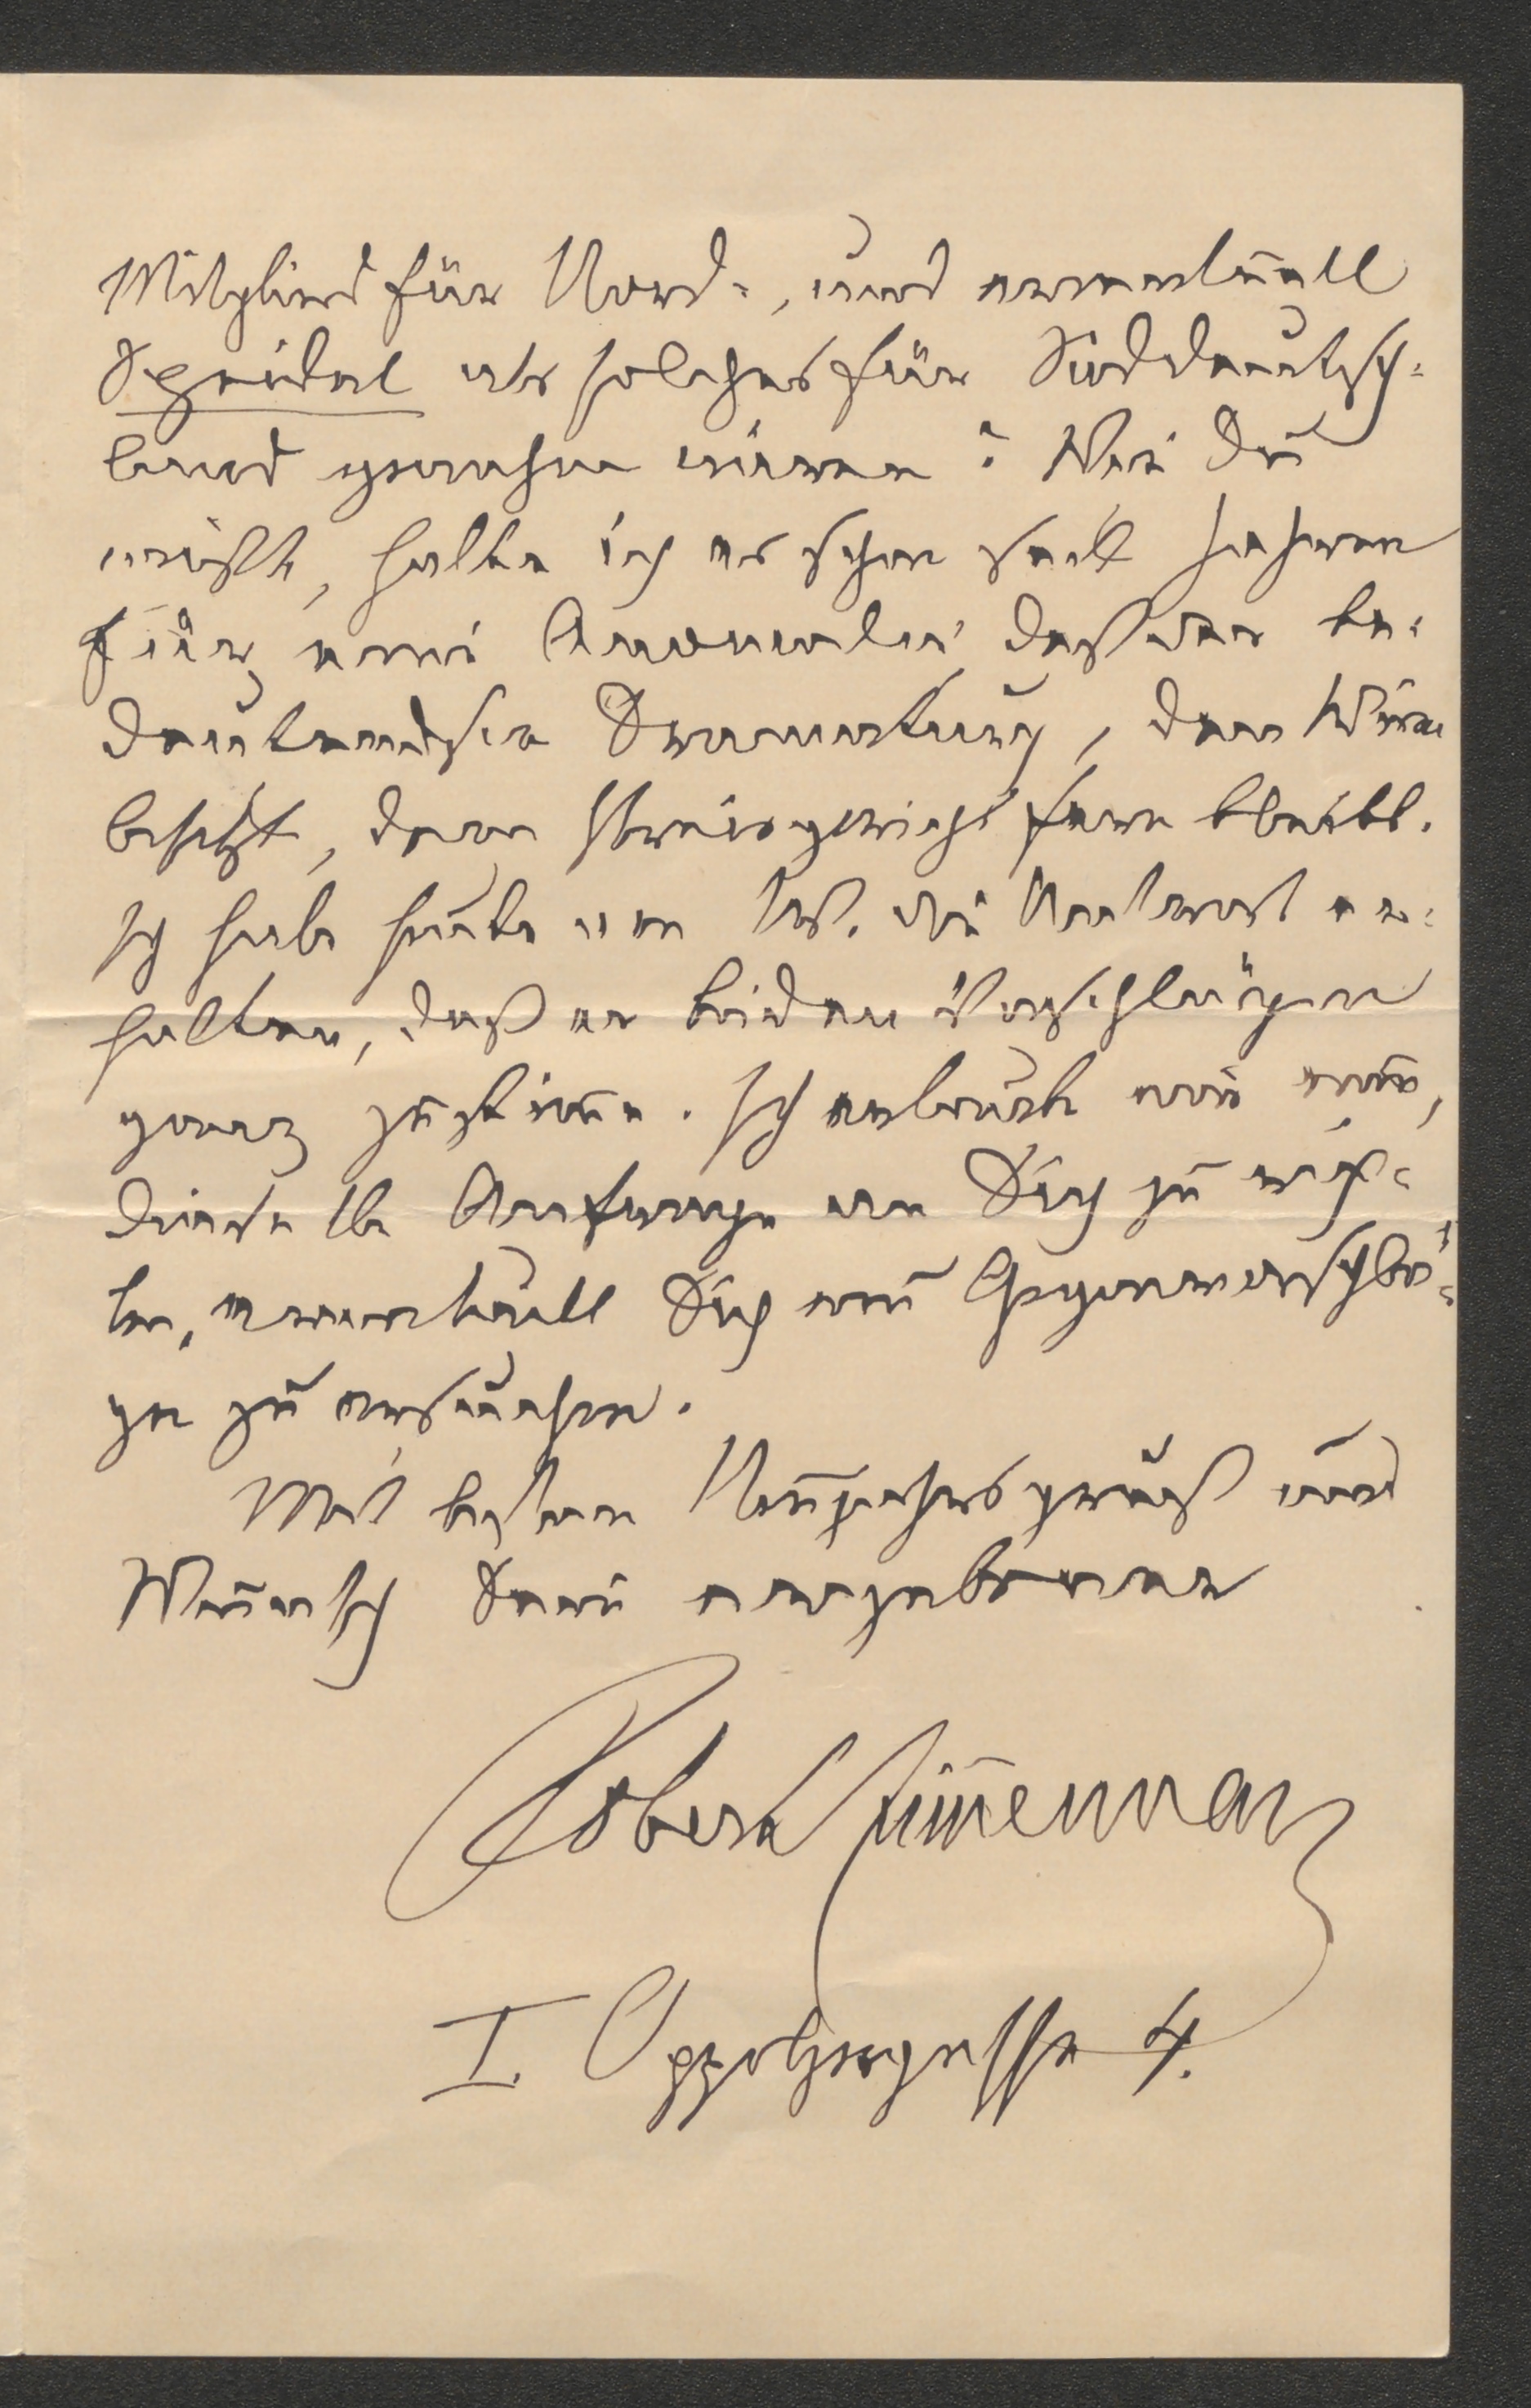 Mitglied für Nord-, und eventuell
Speidel als solches für Süddeutsch-
land genehm wären? Wie Du
weißt, halte ich es schon seit Jahren
für eine Anomalie, daß der be-
deutendste Dramaturg, den Wien
besitzt, dem Preisgericht fern bleibt.
Ich habe heute von W. die Antwort er-
halten, daß er beiden Vorschlägen
ganz zustimme. Ich erlaube mir nun,
dieselbe Anfrage an Dich zu rich-
ten, eventuell Dich um Gegenvorschlä-
ge zu ersuchen.
Mit bestem Neujahrsgruß und
Wunsch Dein ergebener
Robert Zimmermann
I. Oppolzergasse 4.